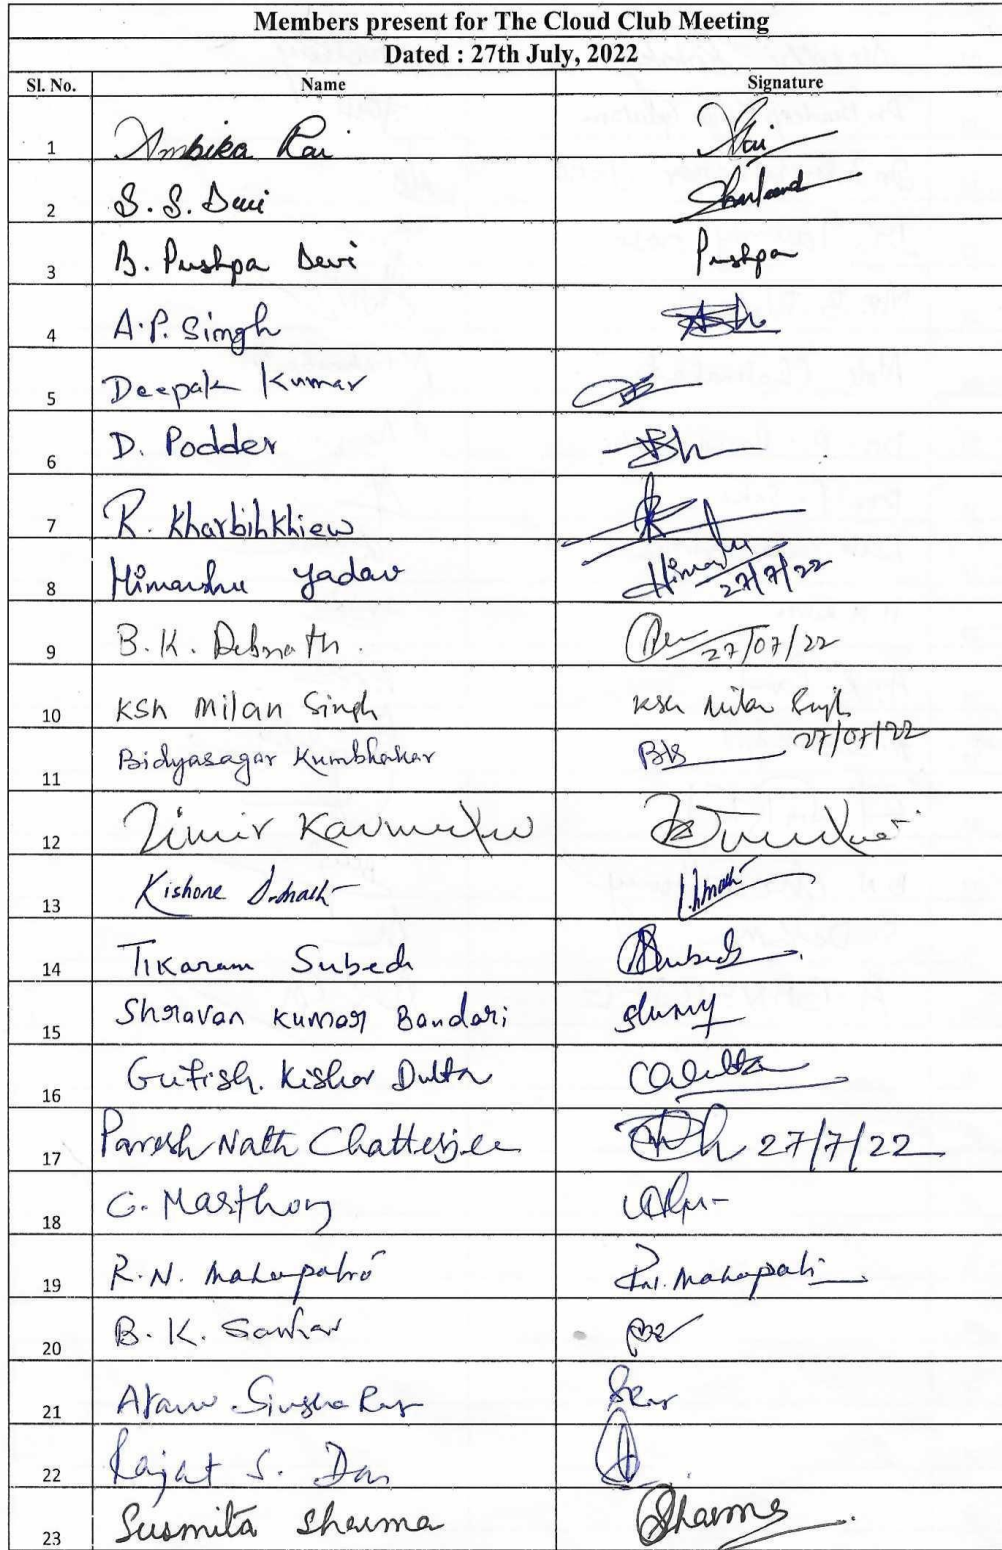 Members present for The Cloud Club Meeting
Dated : 27th July, 2022
Sl. No. Name Signature
1 Ambika Rai Rai
2 S. S. Devi
3 B. Pushpa Devi Pushpa
4 A.P. Singh
5 Deepak Kumar
6 D. Podder
7 R. Kharbihkhiew
8 Himanshu Yadav Himanshu 27/7/22
9 B.K. Debnath. 27/07/22
10 KSh Milan Singh Ksh Milan Singh
11 Bidyasagar Kumbhakar 27/07/22
12 Timir Karmakar
13 Kishore Debnath
14 Tikaram Subedi Subedi
15 Shravan Kumar Bandari
16 Kishor Dutta
17 Paresh Nath Chatterjee 27/7/22
18 C. Marthong
19 R.N. Mahapatro R.N. Mahapatro
20 B.K. Sarkar
21 Singha Roy
22 Rajat S. Das
23 Susmita Sharma Sharma